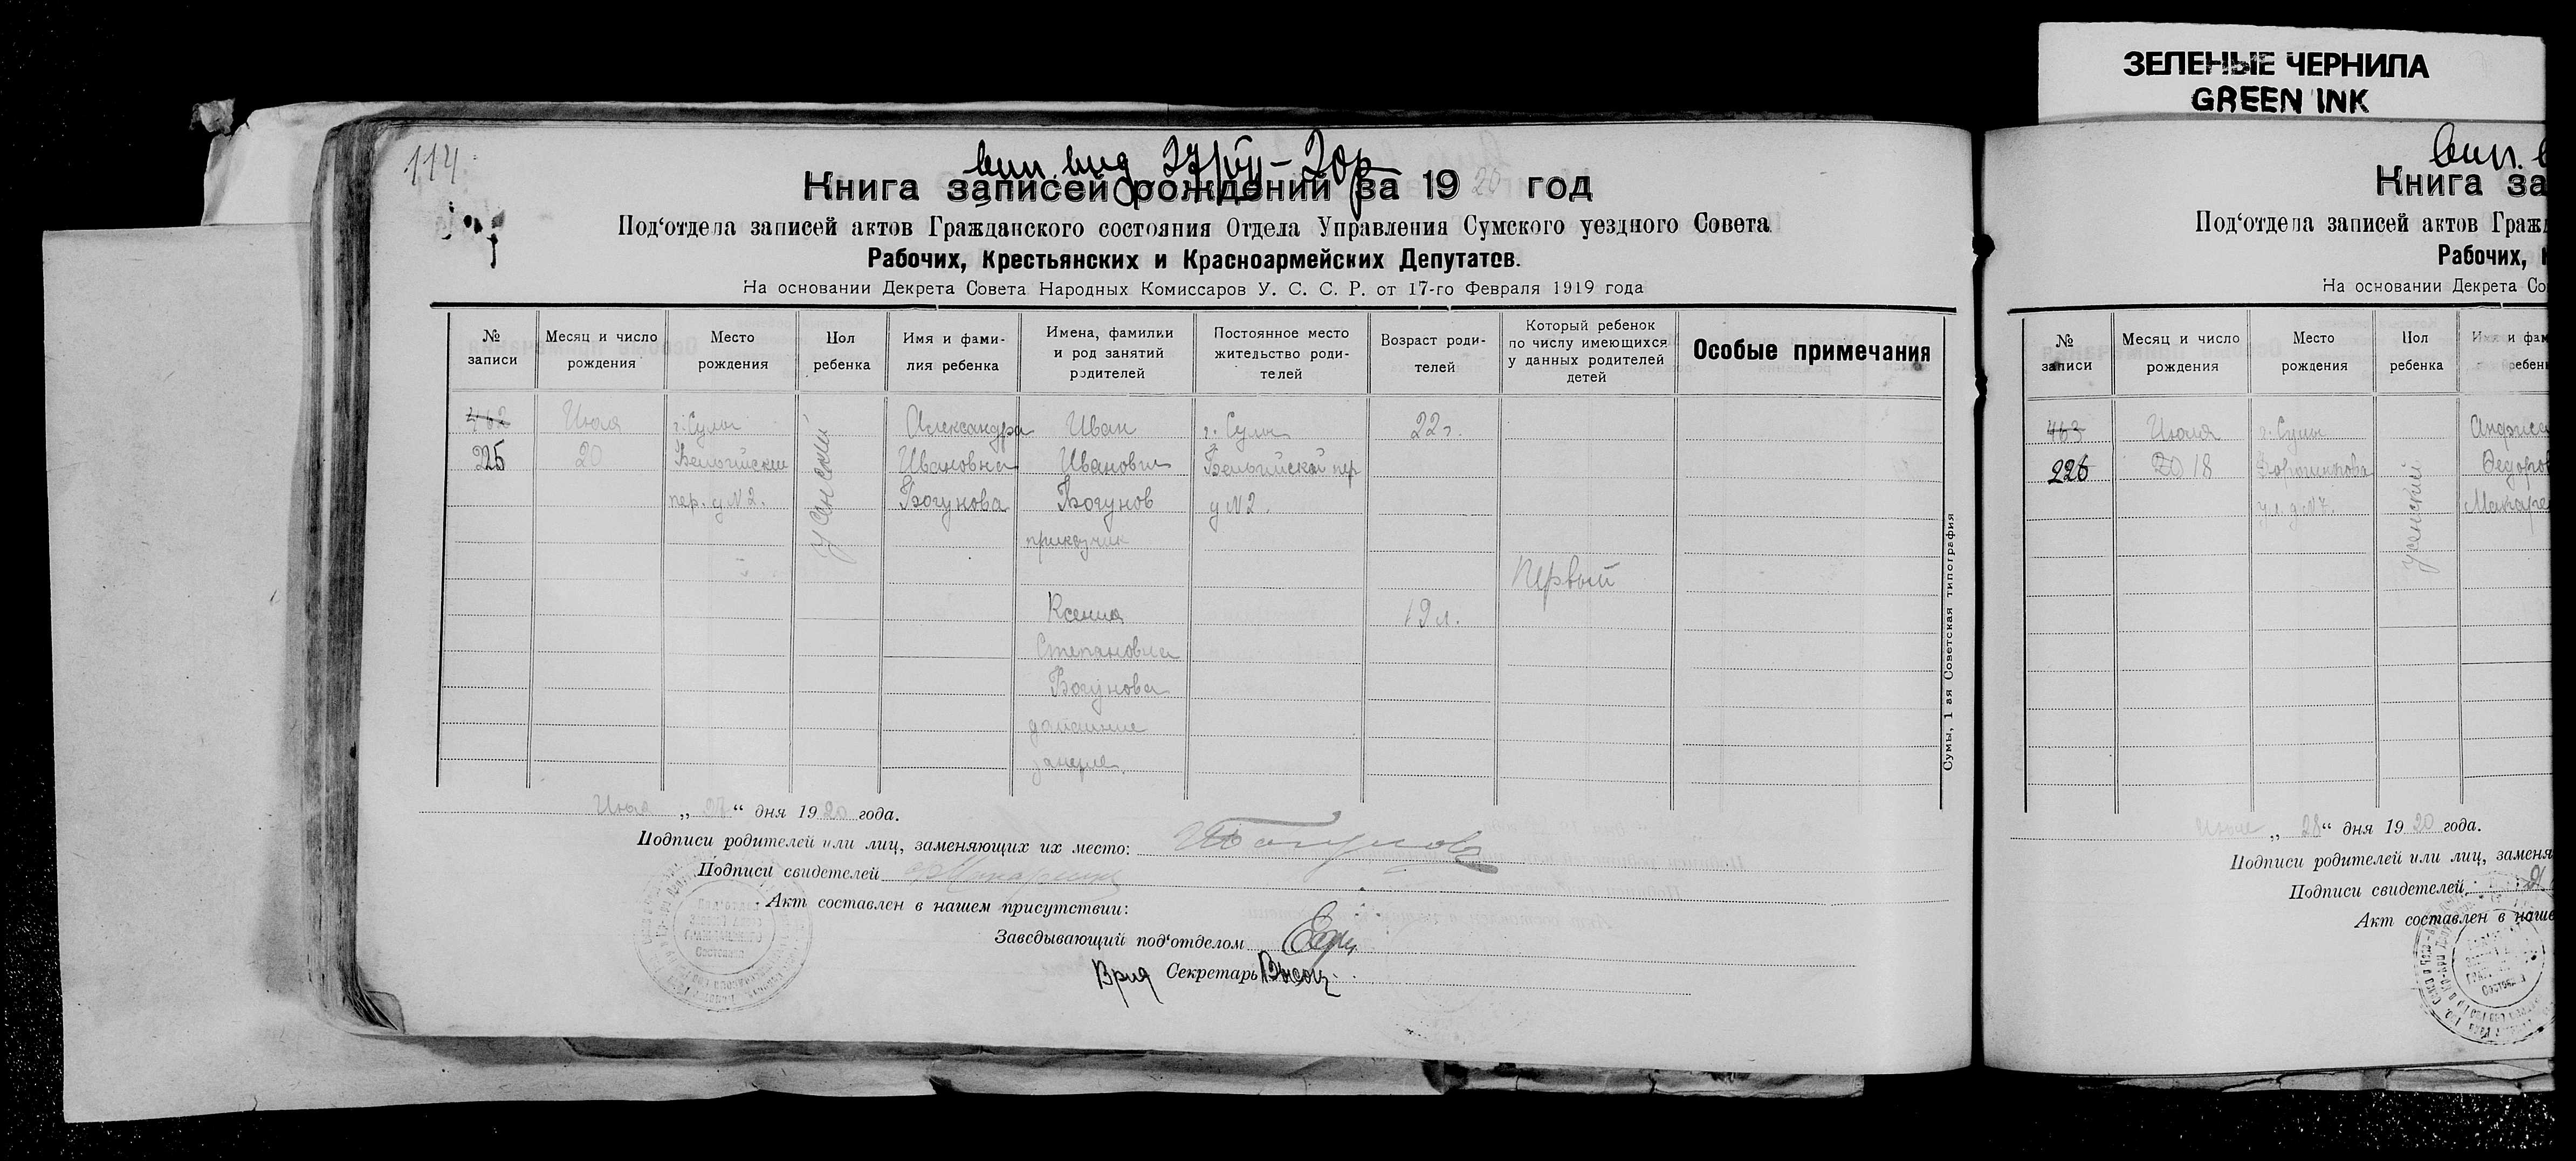 ЗЕЛЕНЫЕ ЧЕРНИЛА
GREEN INK
114
вип. вид 27/VII-20р
Книга записей рождений за 1920 год
Под‘отдела записей актов Гражданского состояния Отдела Управления Сумского уездного Совета
Рабочих, Крестьянских и Красноармейских Депутатов.
На основании Декрета Совета Народных Комиссаров У. С. С. Р. от 17-го Февраля 1919 года
№ записи
Месяц и число рождения
Место рождения
Пол ребенка
Имя и фами-
лия ребенка
Имена, фамилии
и род занятий
родителей
Постоянное место
жительство роди-
телей
Возраст роди-
телей
Который ребенок
по числу имеющихся
у данных родителей
детей
Особые примечания
462
225
Июля
20
г. Сумы
Бельгийский
пер. д №2.
женский
Александра
Ивановна
Богунова
Иван
Иванович
Богунов
приказчик
Ксения
Степановна
Богунова
домашние
занят.
г. Сумы
Бельгийский пер
д №2.
22 г.
19 л.
Первый
Сумы, 1 ая Советская типография
Июля „27“ дня 1920 года.
Подписи родителей или лиц, заменяющих их место: Богунов
Подписи свидетелей
Акт составлен в нашем присутствии:
Заведывающий под‘отделом
Врид Секретарь
вип. в
Книга за
Под‘отдела записей актов Гражд
Рабочих,
На основании Декрета Со
№ записи
Месяц и число рождения
Место рождения
Пол ребенка
Имя и фам
ребен
463
226
Июля
20 18
г. Сумы
ул. д №7.
женский
Федоров
Макаре
Июля „28“ дня 1920 года.
Подписи родителей или лиц, заменя
Подписи свидетелей
Акт составлен в наше